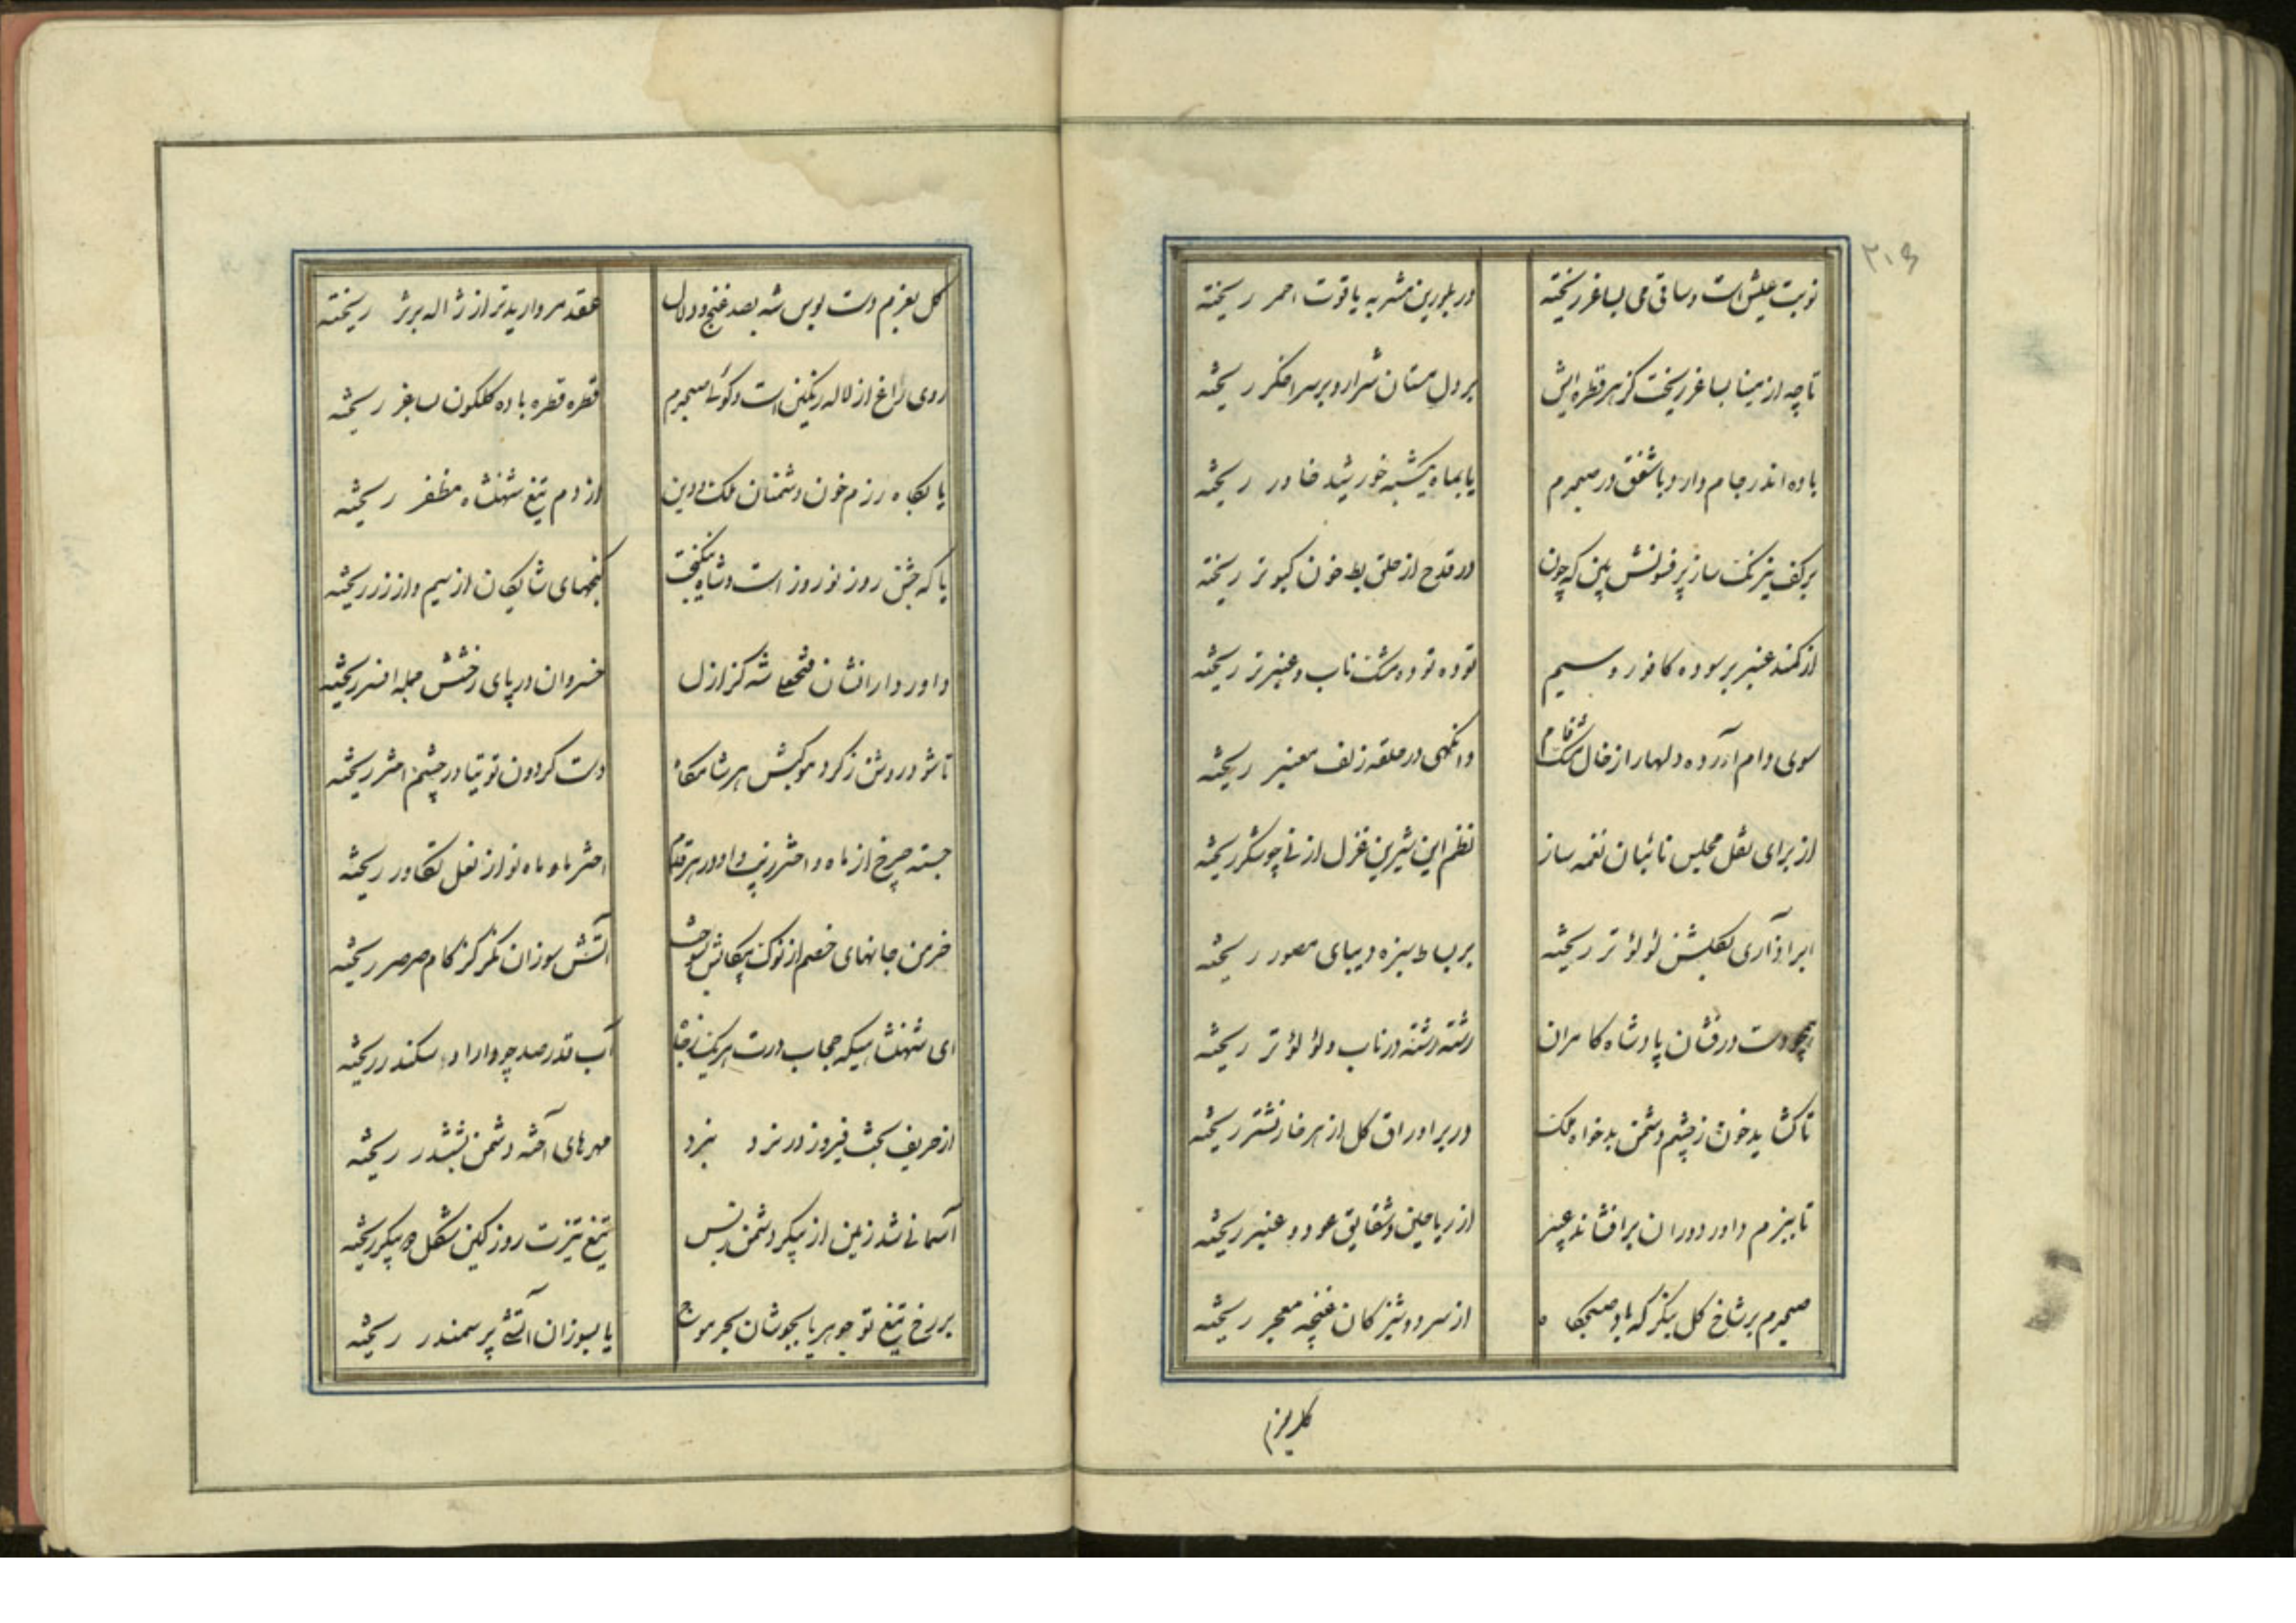 ۲۰۵
نوبت عیش است و ساقی می بساغر ریخته در بلورین مشربه یاقوت احمر ریخته
تا چه از مینا بساغر ریخت کز هر قطره ایش بر دل مستان شرار و بر سر اخگر ریخته
باده اندر جام دارد با شفق در صبحدم یا بماه یکشبه خورشید خاور ریخته
بر کف نیرنگ ساز پر فسونش بین که چون در قدح از حلق بط خون کبوتر ریخته
از کمند عنبر بر سوده کافور و سیم توده توده مشک ناب و عنبر تر ریخته
سوی دام آرده دلها را ز خال مشک فام وانگهی در حلقه زلف معنبر ریخته
از برای نقل مجلس نائیان نغمه ساز نظم این شیرین غزل از نی چو شکر ریخته
ابر آذاری بگلشن لؤلؤ تر ریخته بر بساط سبزه دیبای مصور ریخته
همچو دست درفشان پادشاه کامران رشته رشته در ناب و لؤلؤ تر ریخته
تا گشاید خون ز چشم دشمن بدخواه ملک در بر اوراق گل از هر خار نشتر ریخته
تا ببزم داور دوران برافشاند عبیر از ریاحین و شقایق عود و عنبر ریخته
صبحدم بر شاخ گل بنگر که باد صبحگاه از سر دوشیزکان غنچه معجر ریخته
گل بعزم
گل بعزم دست بوس شه بصد غنج و دلال عقد مروارید تر از ژاله بر بر ریخته
روی راغ از لاله رنگین است و گوئی صبحدم قطره قطره باده گلگون بساغر ریخته
یا بگاه رزم خون دشمنان ملک و دین از دم تیغ شهنشاه مظفر ریخته
یا که جشن روز نوروز است و شاه نیکبخت گنجهای شایگان از سیم و از زر ریخته
داور دارانشان فتحعلی شه کز ازل خسروان در پای رخشش جمله افسر ریخته
تا شود روشن ز گرد موکبش هر شامگاه دست گردون توتیا در چشم اختر ریخته
جسته چرخ از ماه و اختر زیب و او در هر قدم اختر ماه و ماه نو از نعل تکاور ریخته
خرمن جانهای خصم از نوک پیکانش بسوخت آتش سوزان نگر کز کام صرصر ریخته
ای شهنشاهیکه حجاب درت هر یک ز جاه آب قدر صد چو دارا و سکندر ریخته
از حریف بخت فیروز در نرد نبرد مهرهای آخته دشمن بششدر ریخته
آسمانی شد زمین از پیکر دشمن ز بس تیغ تیزت روز کین شکل دو پیکر ریخته
بر رخ تیغ تو جوهر یا بجوشان بحر موج یا بسوزان آتشی پر سمندر ریخته